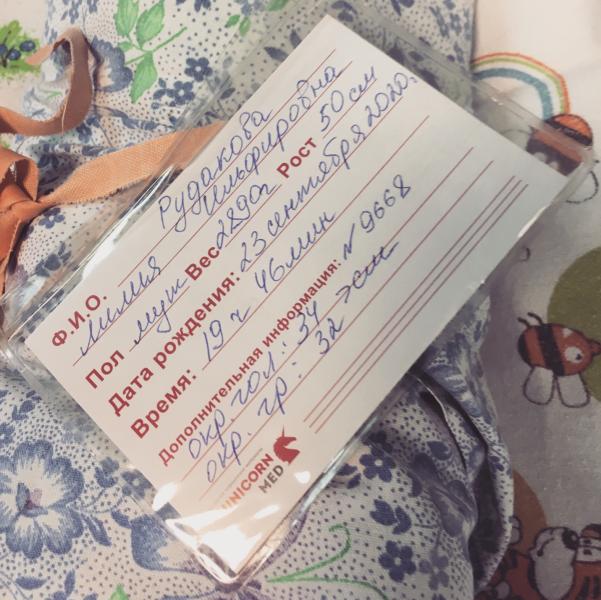 Ф.И.О. Рудакова
Лилия Ильфировна
Пол муж Вес 2890г Рост 50 см
Дата рождения: 23 сентября 2020г
Время: 19 ч 46 мин
Дополнительная информация: N 9668
окр гол.: 34
окр. гр.: 32
UNICORN
MED